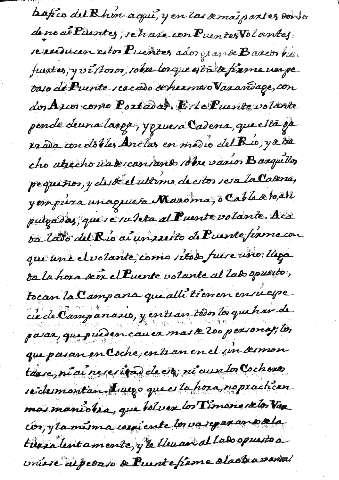 trafico del Rhin aqui, y en las demas partes donde
de no ai Puentes; se hace con Puentes Volantes
se reducen estos Puentes a dos grandes Barcos
fuertes, y vistosos, sobre los que està de firme un pe
daso de Puente sercado de hermoso Varandage, con
dos Arcos como Portadas. Este Puente volante
pende de una larga, y gruesa Cadena, que està
con dobles Anclas en medio del Rio, y
trecho va descansando sobre varios Barquillos
pequeños, y desde el ultimo de estos sesa la Cadena,
y empieza una gruesa Maroma, ò Cable de
pulgadas, que se sujeta al Puente volante. A ca
da lado del Rio ai un pedasito de Puente firme con
que une el volante, como si todo fuese uno: llega
da la hora de ir el Puente volante al lado opuesto,
tocan la Campana que alli tienen en su espe
cie de Campanario, y entran todos los que han de
pasar, que pueden caver mas de 200 personas, los
que pasan en Coche, entran en el sin desmon
tarse, ni ai nesesidad de ello, ni aun los Cocheros
se desmontan. Luego que es la hora, no practican
mas maniobra, que bolver los Timones de los Var
cos, y la misma corriente los va separando de la
tierra lentamente, y le llevan al lado opuesto a
unirse al pedaso de Puente firme de la otra vanda